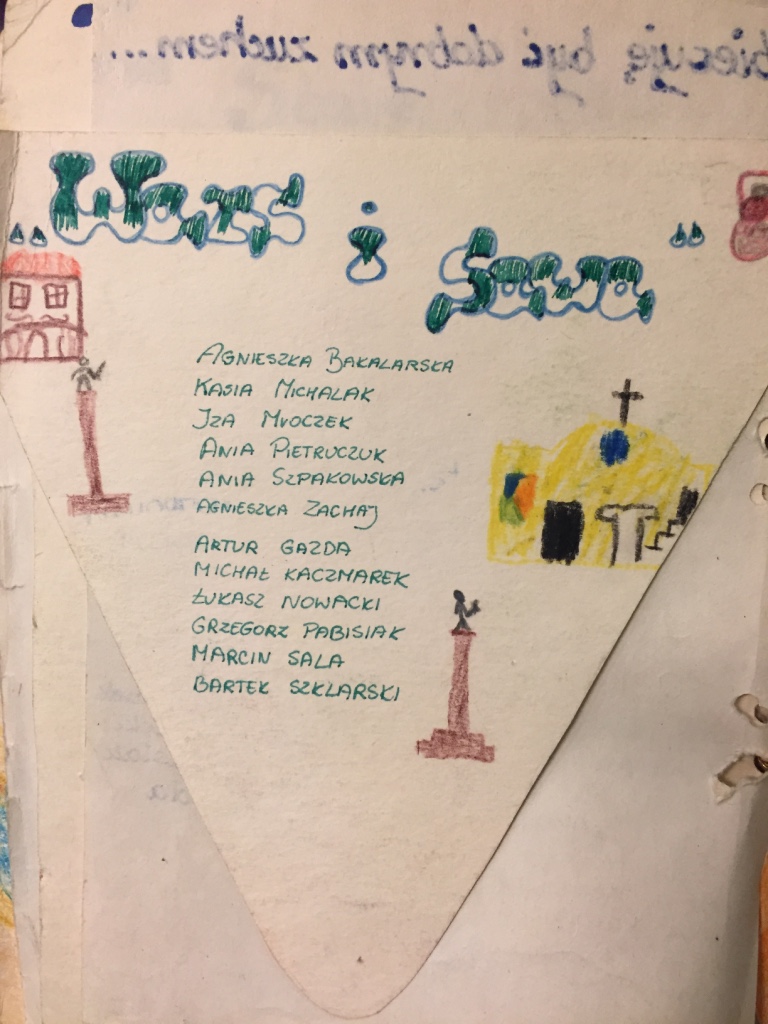 biecuję być dobrym zuchem...
„Wars i Sawa"
AGNIESZKA BAKALARSKA
KASIA MICHALAK
IZA MROCZEK
ANIA PIETRUCZUK
ANIA SZPAKOWSKA
AGNIESZKA ZACHAJ
ARTUR GAZDA
MICHAŁ KACZMAREK
ŁUKASZ NOWACKI
GRZEGORZ PABISIAK
MARCIN SALA
BARTEK SZKLARSKI